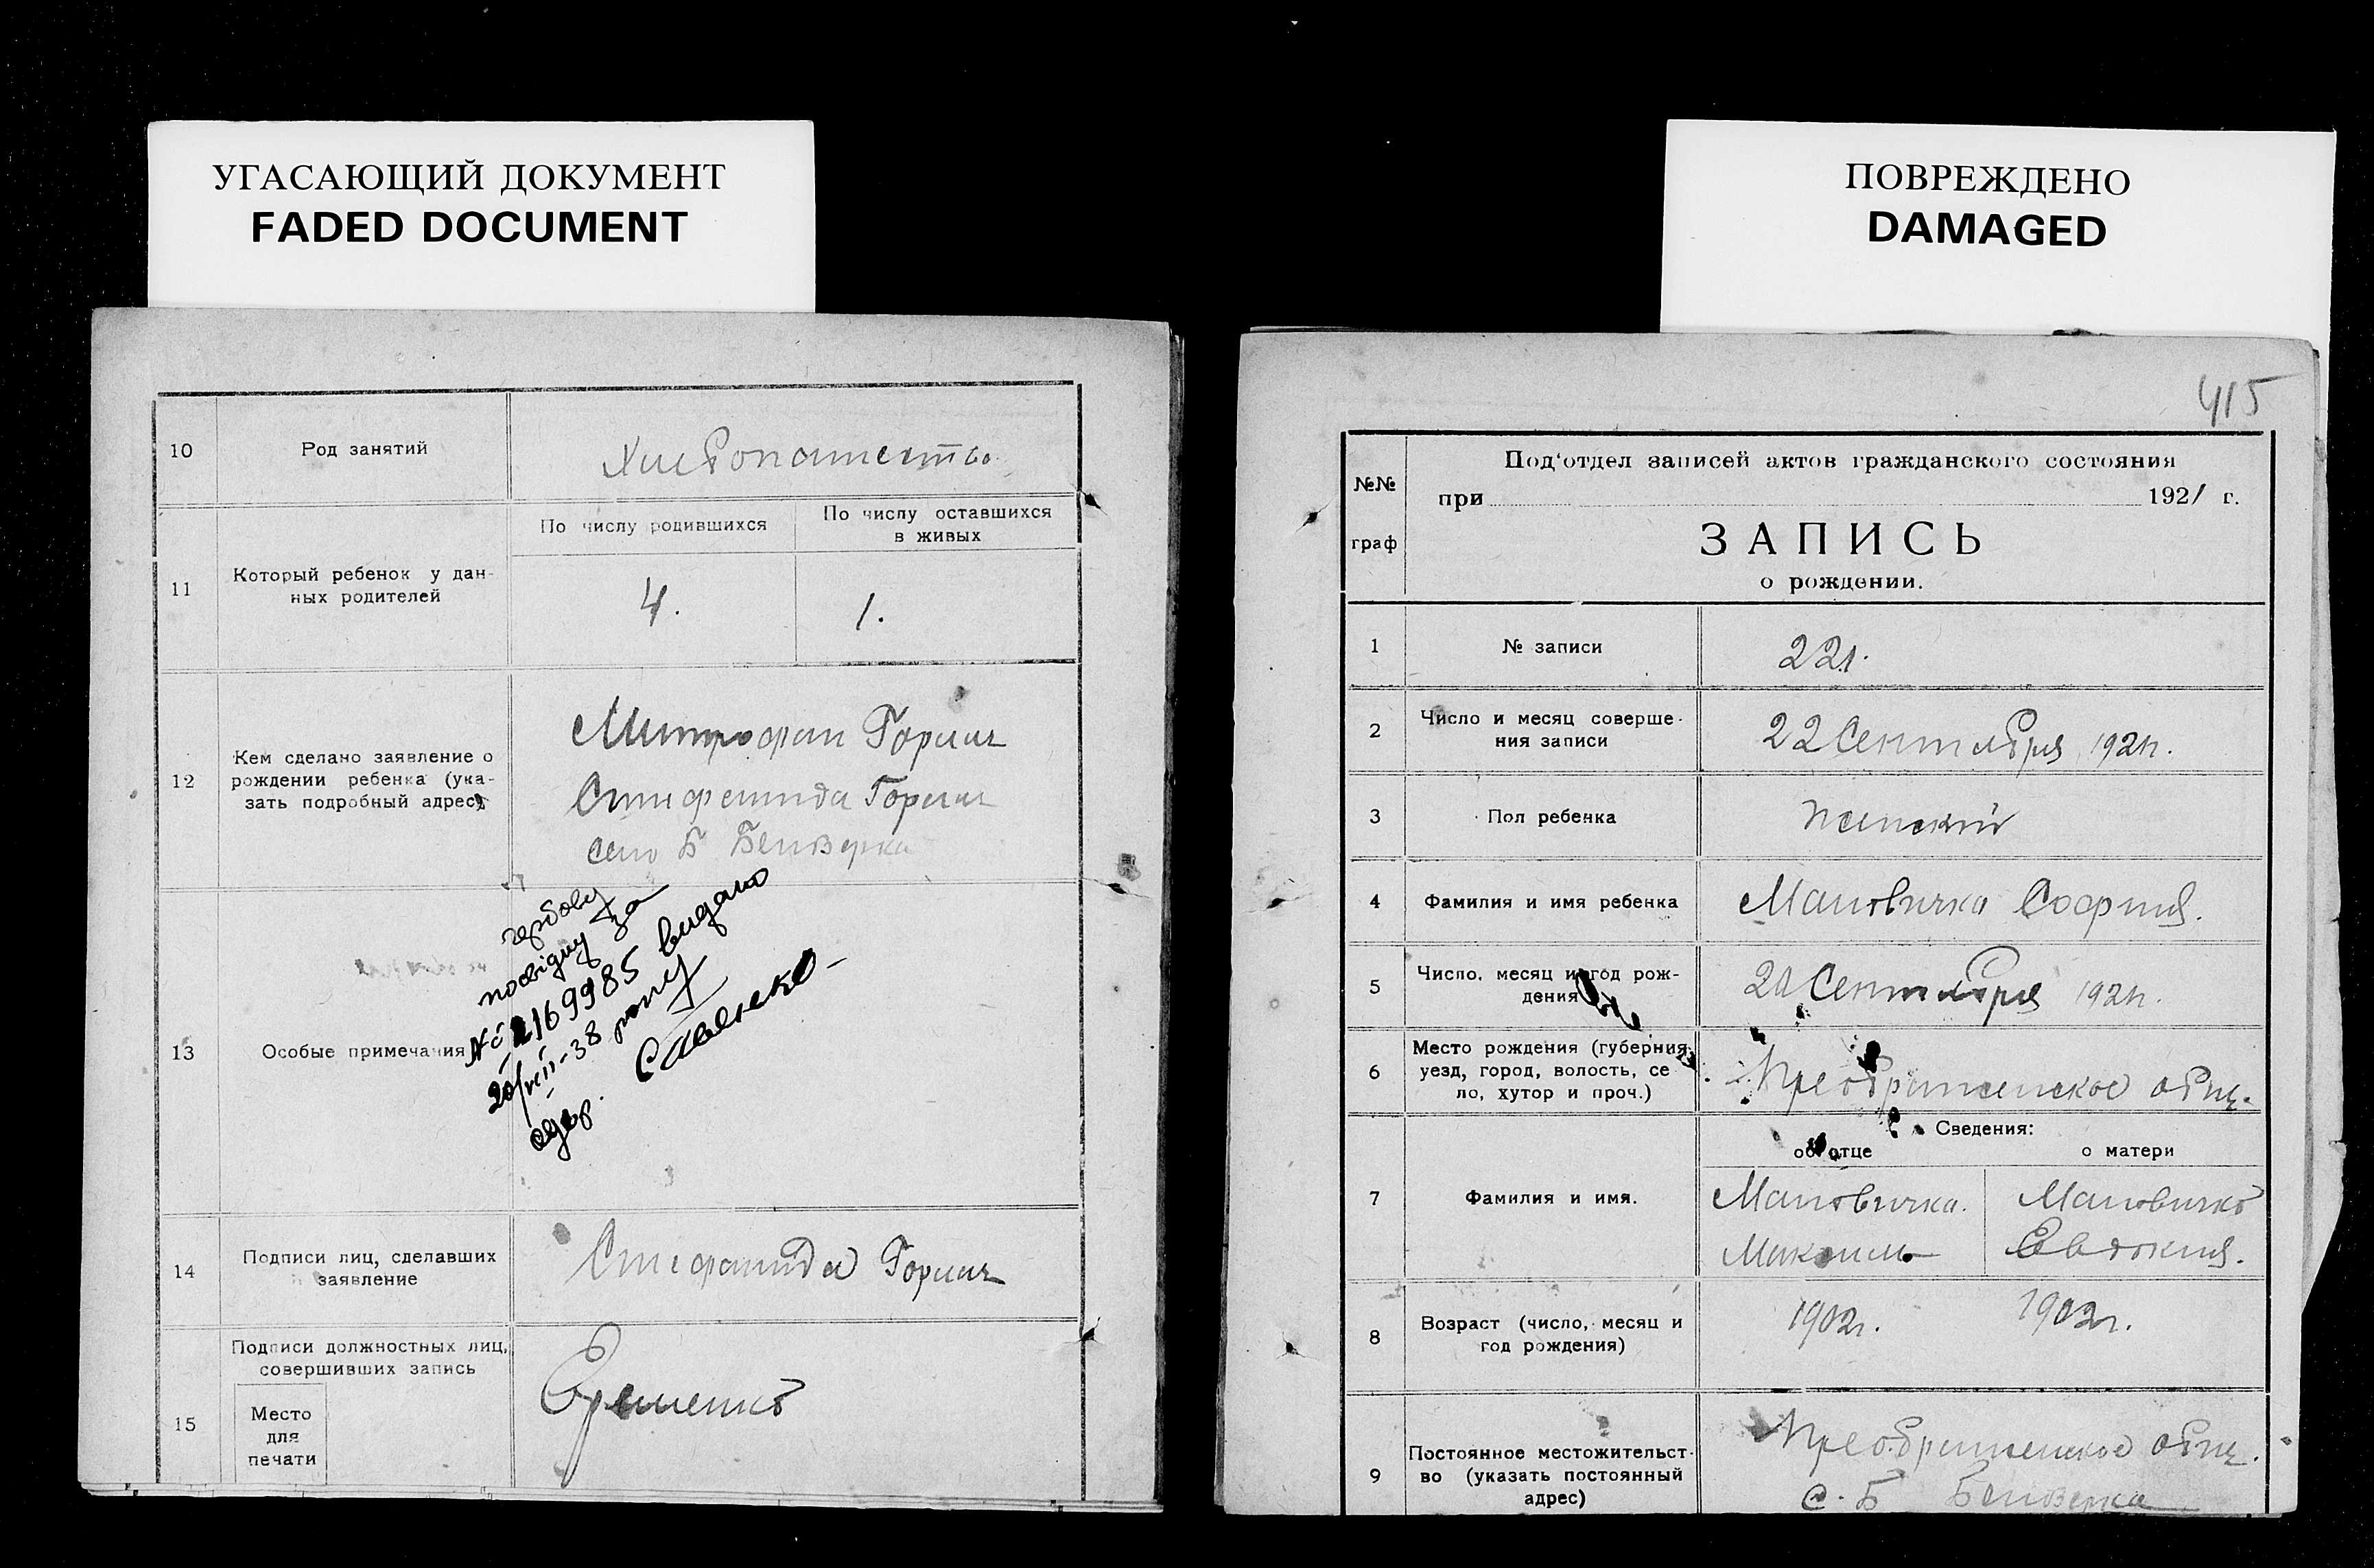 УГАСАЮЩИЙ ДОКУМЕНТ
FADED DOCUMENT
10
Род занятий
Хлебопашество
11
Который ребенок у дан-
ных родителей
По числу родившихся
По числу оставшихся
в живых
4.
1.
12
Кем сделано заявление о
рождении ребенка (ука-
зать подробный адрес)
Митрофан Горлач
Стифанида Горлач
село Б Белозерка
13
Особые примечания
гербову
посвідку за
№ 2169985 видано
20/VII-38 року
одер.
Савенко
14
Подписи лиц, сделавших
заявление
Стефанида Горлач
15
Подписи должностных лиц,
совершивших запись
Место
для
печати
Еременко
ПОВРЕЖДЕНО
DAMAGED
415
№№
граф
Под'отдел записей актов гражданского состояния
при 1921 г.
ЗАПИСЬ
о рождении.
1
№ записи
221.
2
Число и месяц соверше-
ния записи
22 Сентября 1921г.
3
Пол ребенка
женский
4
Фамилия и имя ребенка
Мановичка София.
5
Число, месяц и год рож-
дения
20 Сентября 1921г.
6
Место рождения (губерния,
уезд, город, волость, се
ло, хутор и проч.)
Преображенское общ.
7
Фамилия и имя.
Сведения:
об отце
о матери
Мановичка.
Максим
Мановичко
Евдокия.
8
Возраст (число, месяц и
год рождения)
1902г.
1902г.
9
Постоянное местожительст-
во (указать постоянный
адрес)
Преображенское общ.
с. Б Белозерка